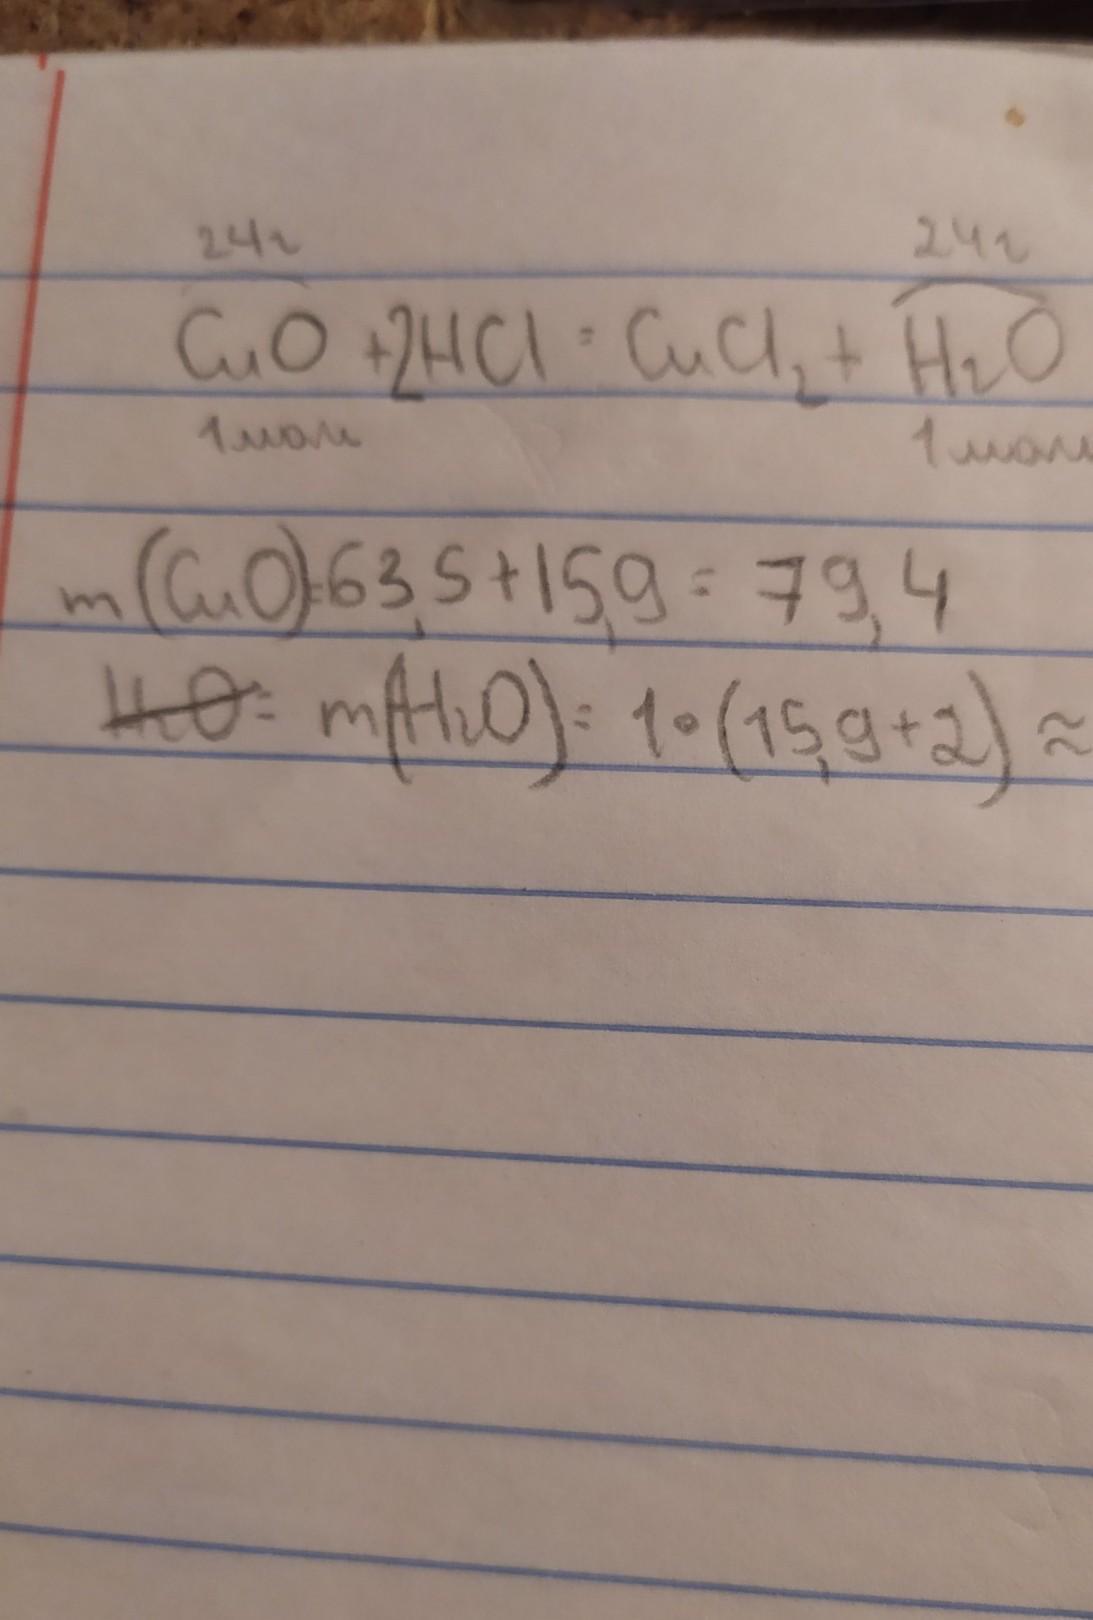 24г 24г
CuO +2HCl = CuCl₂ + H₂O
1моль 1моль
m(CuO)=63,5+15,9 = 79,4
m(H₂O)= 1•(15,9+2) ≈